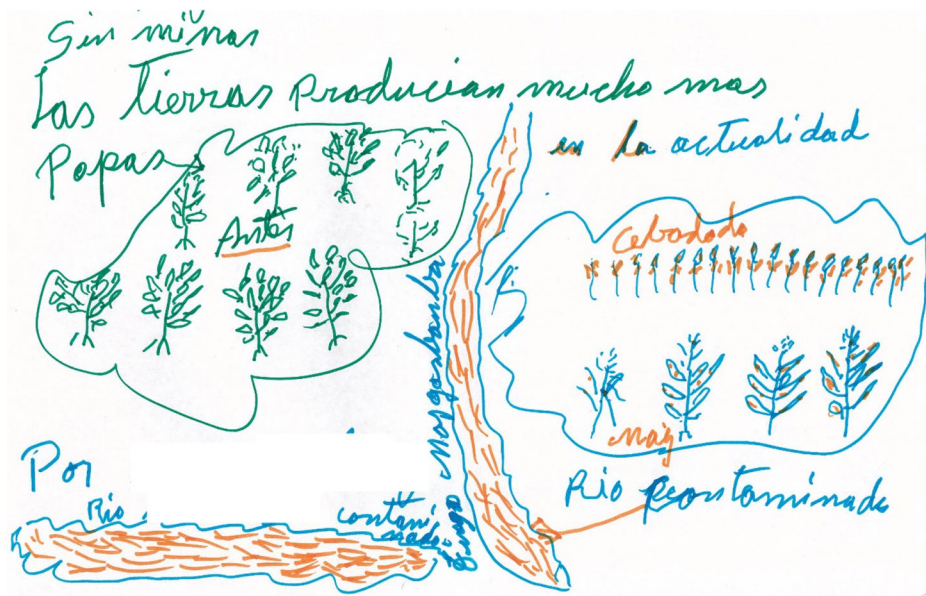 Sin minas
Las tierras Producian mucho mas
Papas
Antes
en la actualidad
Cebadada
Maiz
Por
Rio
contami
nado
Rio contaminado